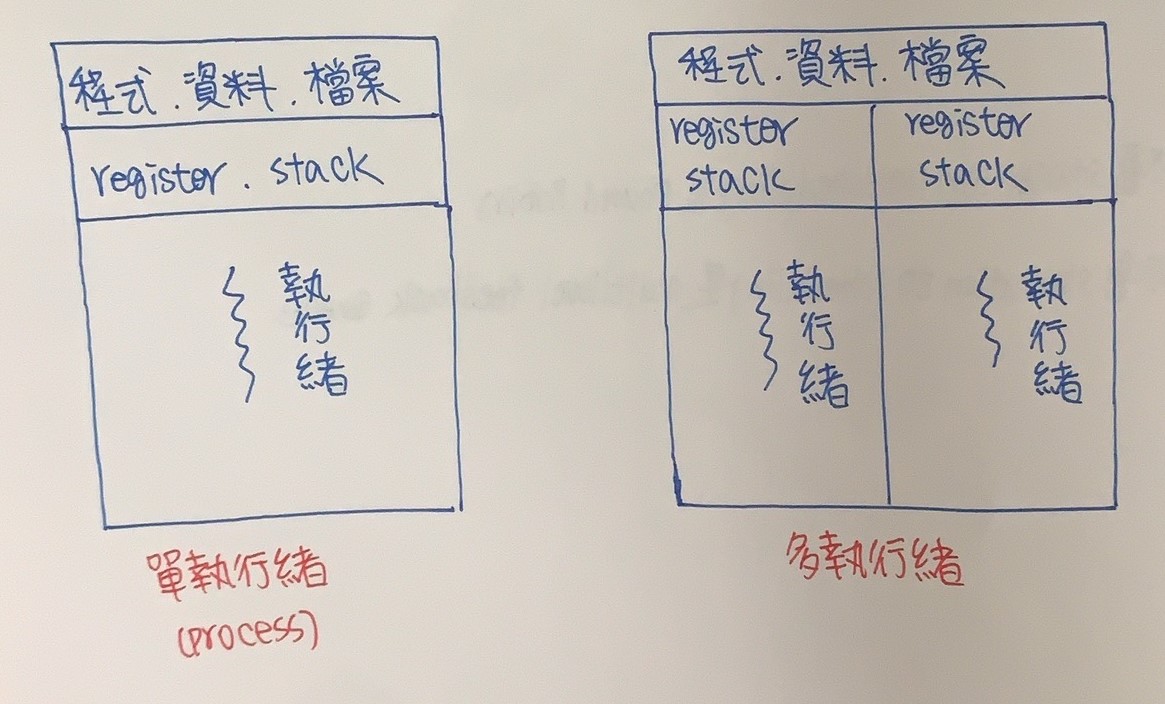 程式.資料.檔案
register.stack
執
行
緒
單執行緒
(process)
程式.資料.檔案
register
stack
register
stack
執
行
緒
執
行
緒
多執行緒